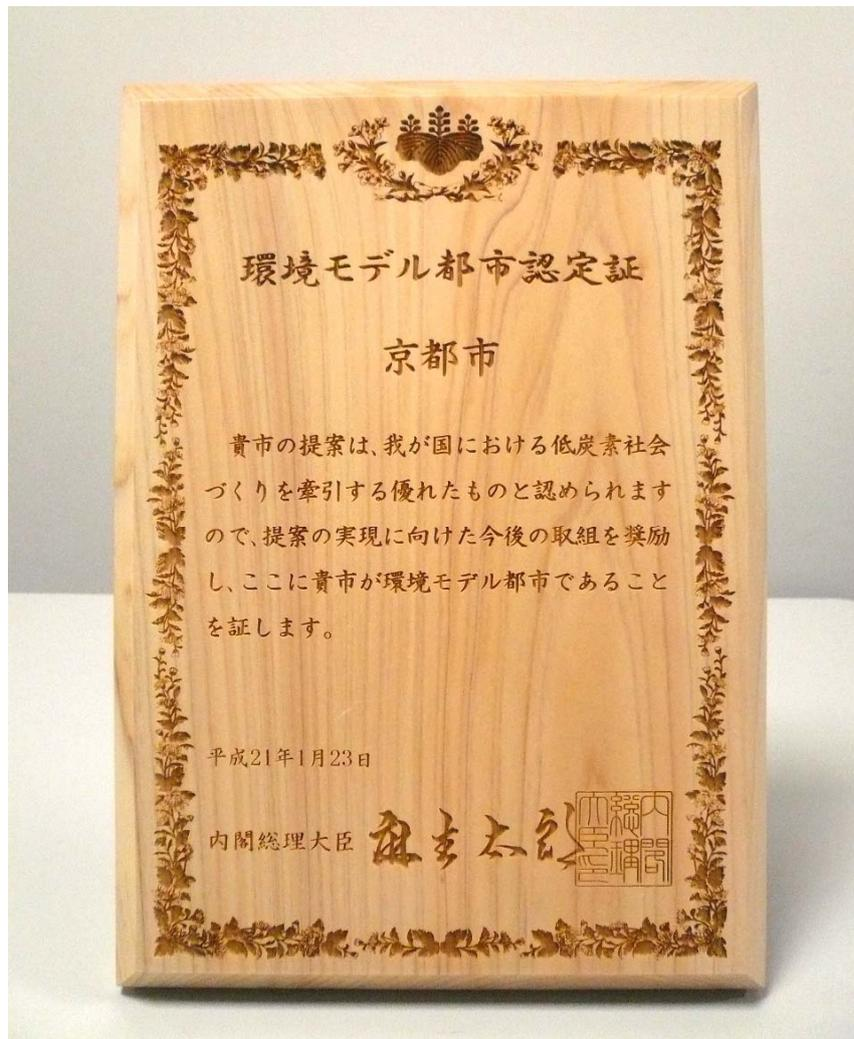 環境モデル都市認定証
京都市
貴市の提案は、我が国における低炭素社会
づくりを牽引する優れたものと認められます
ので、提案の実現に向けた今後の取組を奨励
し、ここに貴市が環境モデル都市であること
を証します。
平成21年1月23日
内閣総理大臣 麻生太郎
内閣総理大臣印